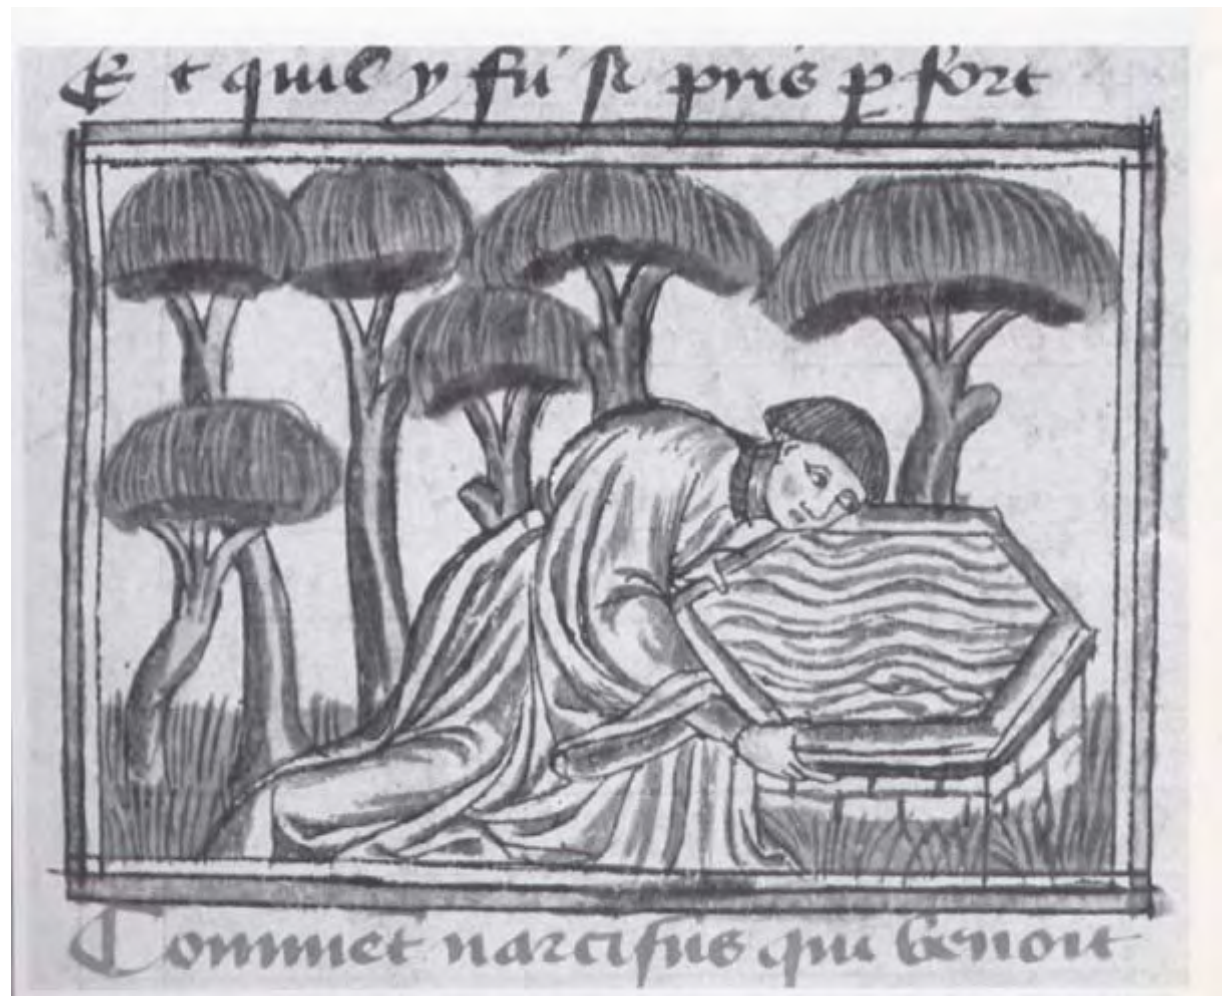 Et quil y fu si pris p fort
Commet narcisus qui benoit